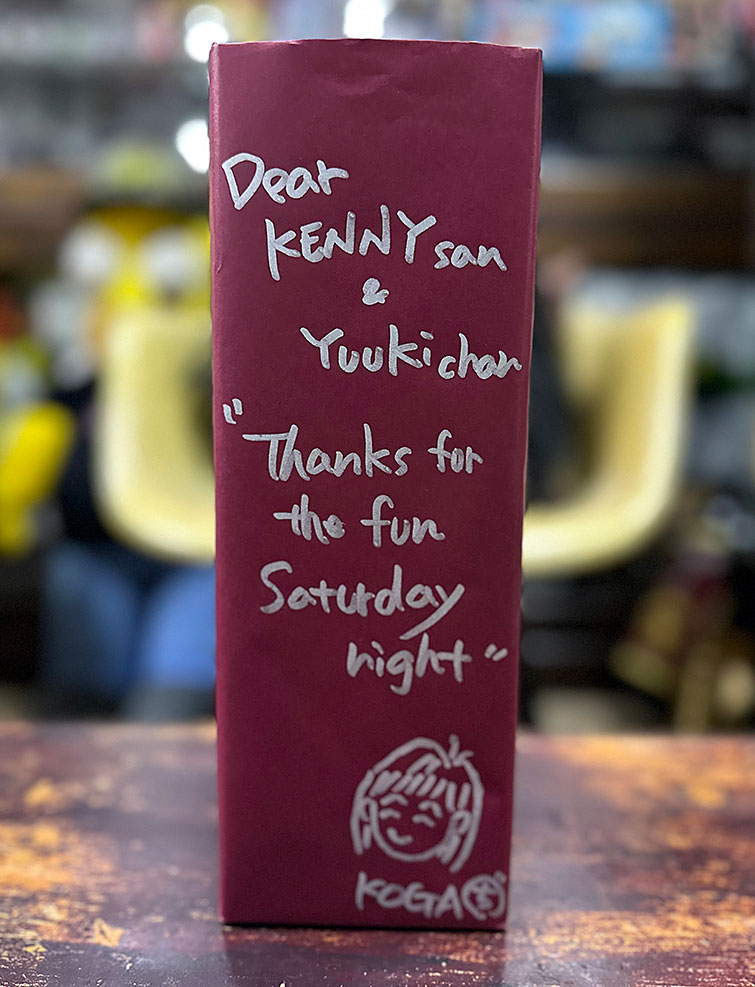 Dear
KENNY san
&
Yuuki chan
"Thanks for
the fun
Saturday
night"
KOGA